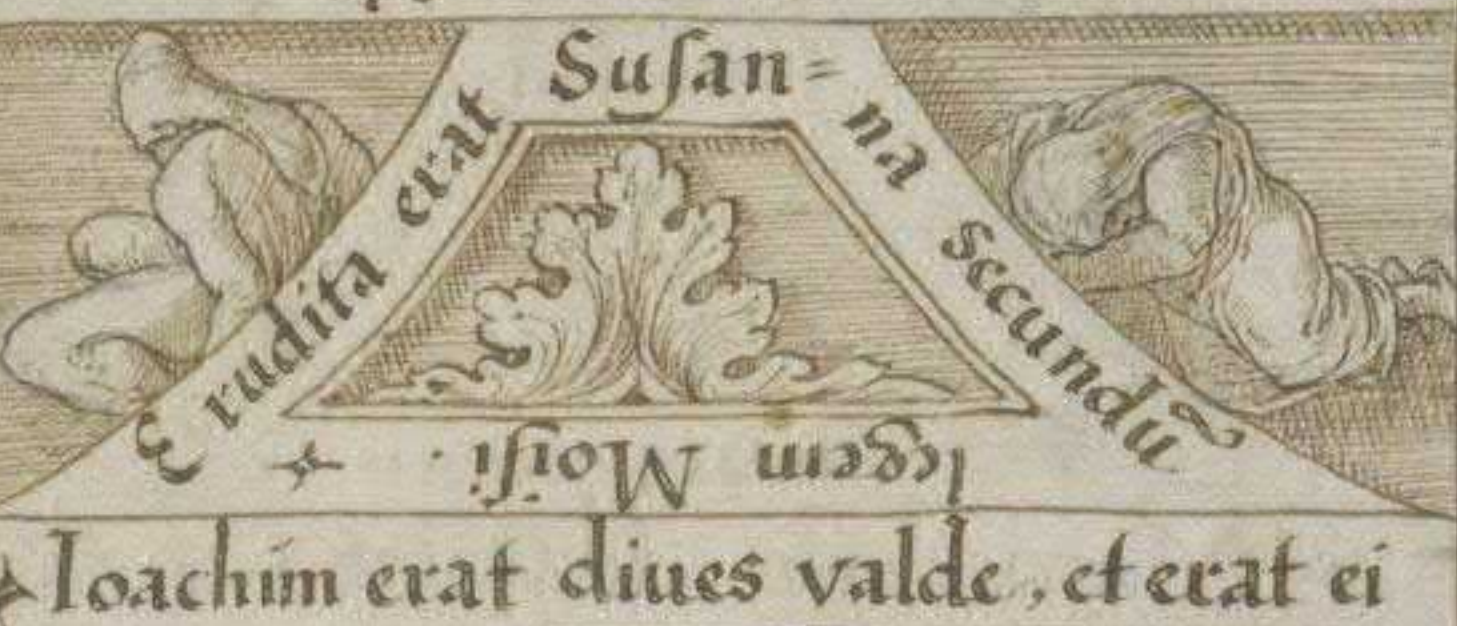 Erudita erat
Suſan=
na secundũ
legem Moisi .
Ioachim erat diues valde, et erat ei